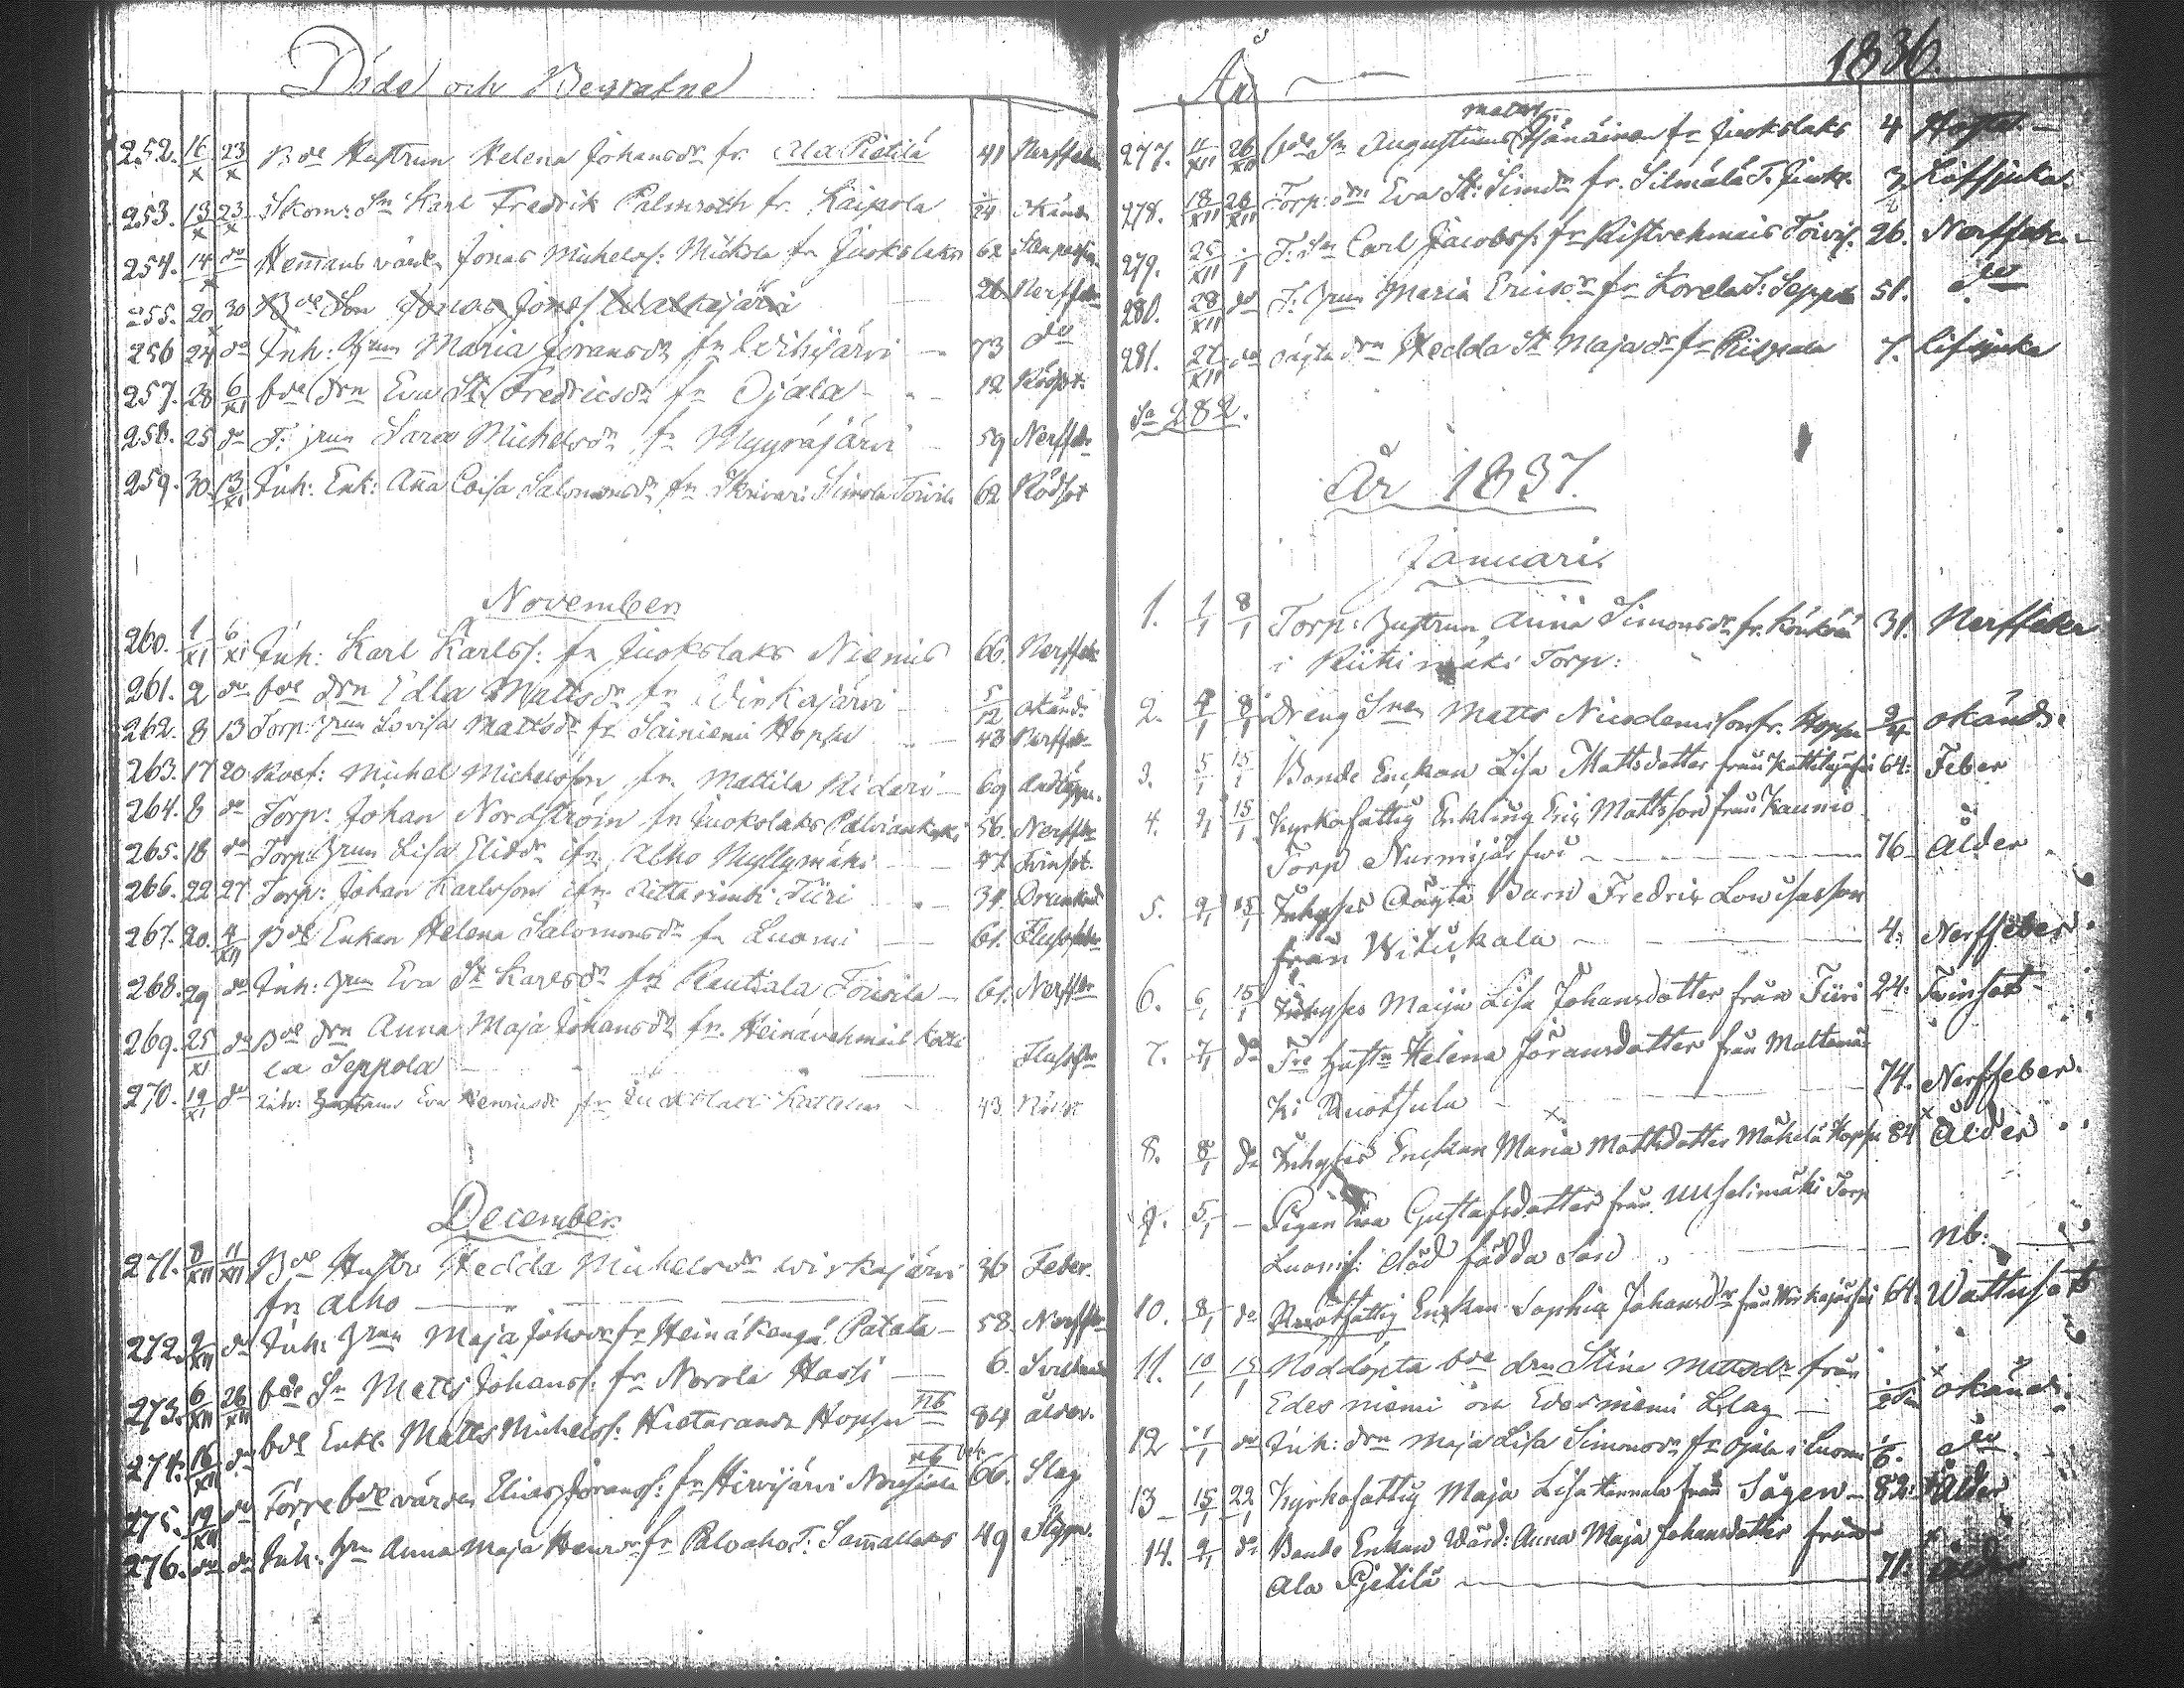 Döde och Begrafne
252. 16/X 23/X Bde Hustrun Helena Johansdr fr. Ala Pietilä 41 Nerffeber
253. 13/X 23/X Skom: Sn Karl Fredrik Palmroth fr. Kaipola 1/24 okänd
254. 14/X do Hemans värdn Jonas Michelss: Mickola fr Juokslaks 62
255. 20/X 30 Bde Son Jonas Josefs Walkejärvi 26 Nerffeber
256 24 do Inh: Hrun Maria Joransdr fr Wihijärvi 73 do
257. 28 6/XI bde drn Eva St: Fredricsdr fr Ojala 12 Rödsot
258. 25 do T: hrun Sara Michelsdr fr Myyräjärvi 59 Nerffeber
259. 30 13/XI Inh: Enk: Ana Loisa Salomonsdr fr Skrivari Simola Toivila 62 Rödsot
November
260. 1/XI 6/XI Inh: Karl Karlss: fr Juokslaks Niemis 66. Nerffeber
261. 2 do bde drn Edla Mattsdr fr Wirkajärvi 5/12 okänd:
262. 8 13 Torp: hrun Lovisa Mattsdr fr Sainiemi Hopsu 43 Nerffeber
263. 17 20 Michel Michelsson fr. Mattila Ridari 69 Andtäppa.
264. 8 do Torp: Johan Nordström fr Juokslaks 56. Nerffeber
265. 18 do Torp: hrun Lisa Eliedr fr Alho Myllymäki 47. Tvinsot.
266. 22 27 Torp: Johan Karlsson fr Tiiri 31. Drunknad
267. 20. 4/XII Bde Enkan Helena Salomonsdr fr Luomi 61. Flussfeber
268. 29 do Inh: hrun Eva St Karlsdr fr Rautiala Toivila 61. Nerffeber
269. 25/XI do Bde drn Anna Maja Johansdr fr. Heinävehmais Katti
la Seppola Flussfeber
270. 19/XI do Inh: Hustrun Eva Henricsdr fr 43
December
271. 8/XII 11/XII Bde Hustru Hedda Michelsdr Wirkajärvi 36 Feber.
fr Alho
272. 9/XII do Inh: hrun Maja Johsdr fr Heinäkangas Patala 58. Nerffeber
273. 6/XII 26/XII bde Sn Matts Johanss: fr Norola Hassi 6.
274. 16/XII do bde Enkl. Matts Michelss: Hietaranda Hopsu nb 84 ålder.
275. 19/XII do Förre bde värden Elias Joranss: fr Hirvijärvi nb 66. Slag
276. do do Inh: hrn Anna Maja Henrdr fr Palvaho T: Samallaks 49 Slypn.
År 1836.
277. 11/XII 26/XII bde Sn Augustinus fr Juokslaks 4 Hosta
278. 18/XII 26/XII Torp: drn Eva St: Simdr fr. Silmälä T. Juoks. 3
279. 25/XII 1/1 T: Sn Carl Jacobss: fr Ristvehmais Toivis: 26. Nerffeber
280. 28/XII do T: hrun Maria Ericsdr fr Korela T: Seppolo 51. do
281. 27/XII do oägta drn Hedda St Majadr fr Riihiala 7.
Sa 282.
År 1837.
Januari.
1. 1/1 8/1 Torp: Hustrun Anna Simonsdr fr. 31. Nerffeber
i Riihimäki Torp:
2. 4/1 8/1 Dreng Snen Matts Nicodemisson fr. Hopsu okänd.
3. 5/1 15/1 Bonde Enckan Lisa Mattsdotter från Kattilajärfvi 64: Feber
4. 9/1 15/1 Kyrkofattig Enkling Eric Mattsson från Kaunio
Torp Nurmijärfwi 76 Ålder
5. 9/1 15/1 Inhyses Oägta Barn Fredric Lowisasson
från Wituskala 4. Nerffeber.
6. 6/1 15/1 Inhyses Maija Lisa Johansdotter från Tiiri 24: Twinsot
7. 7/1 do Tre Hustn Helena Jöransdotter från Mattamä:
ki Ruotsula 74. Nerffeber.
8. 8/1 do Inhyses Enckan Maria Mattsdotter Mäkelä Hopsu 84 Ålder
9. 5/1 Pigan Eva Gustafsdotters från Uusalimäki Torp
Luomis: död födda Son nb:
10. 8/1 do Ruotfattig Enckan Sophia Johansdr från Wirkajärfvi 64. Wattusot
11. 10/1 15/1 Nöddöpta bde drn Stina Mattsdr från
Edesniemi och Edesniemi Lslag okänd:
12 11/1 do Inh: drn Maja Lisa Simonsdr fr Ojala i Luomi 1/6. do
13 15/1 22/1 Kyrkofattig Maja Lisa Hannula från Sågen 82: Ålder
14. 9/1 do Bonde Enkan Wärd: Anna Maja Johansdotter från
Ala Pjetilä 71. Ålder